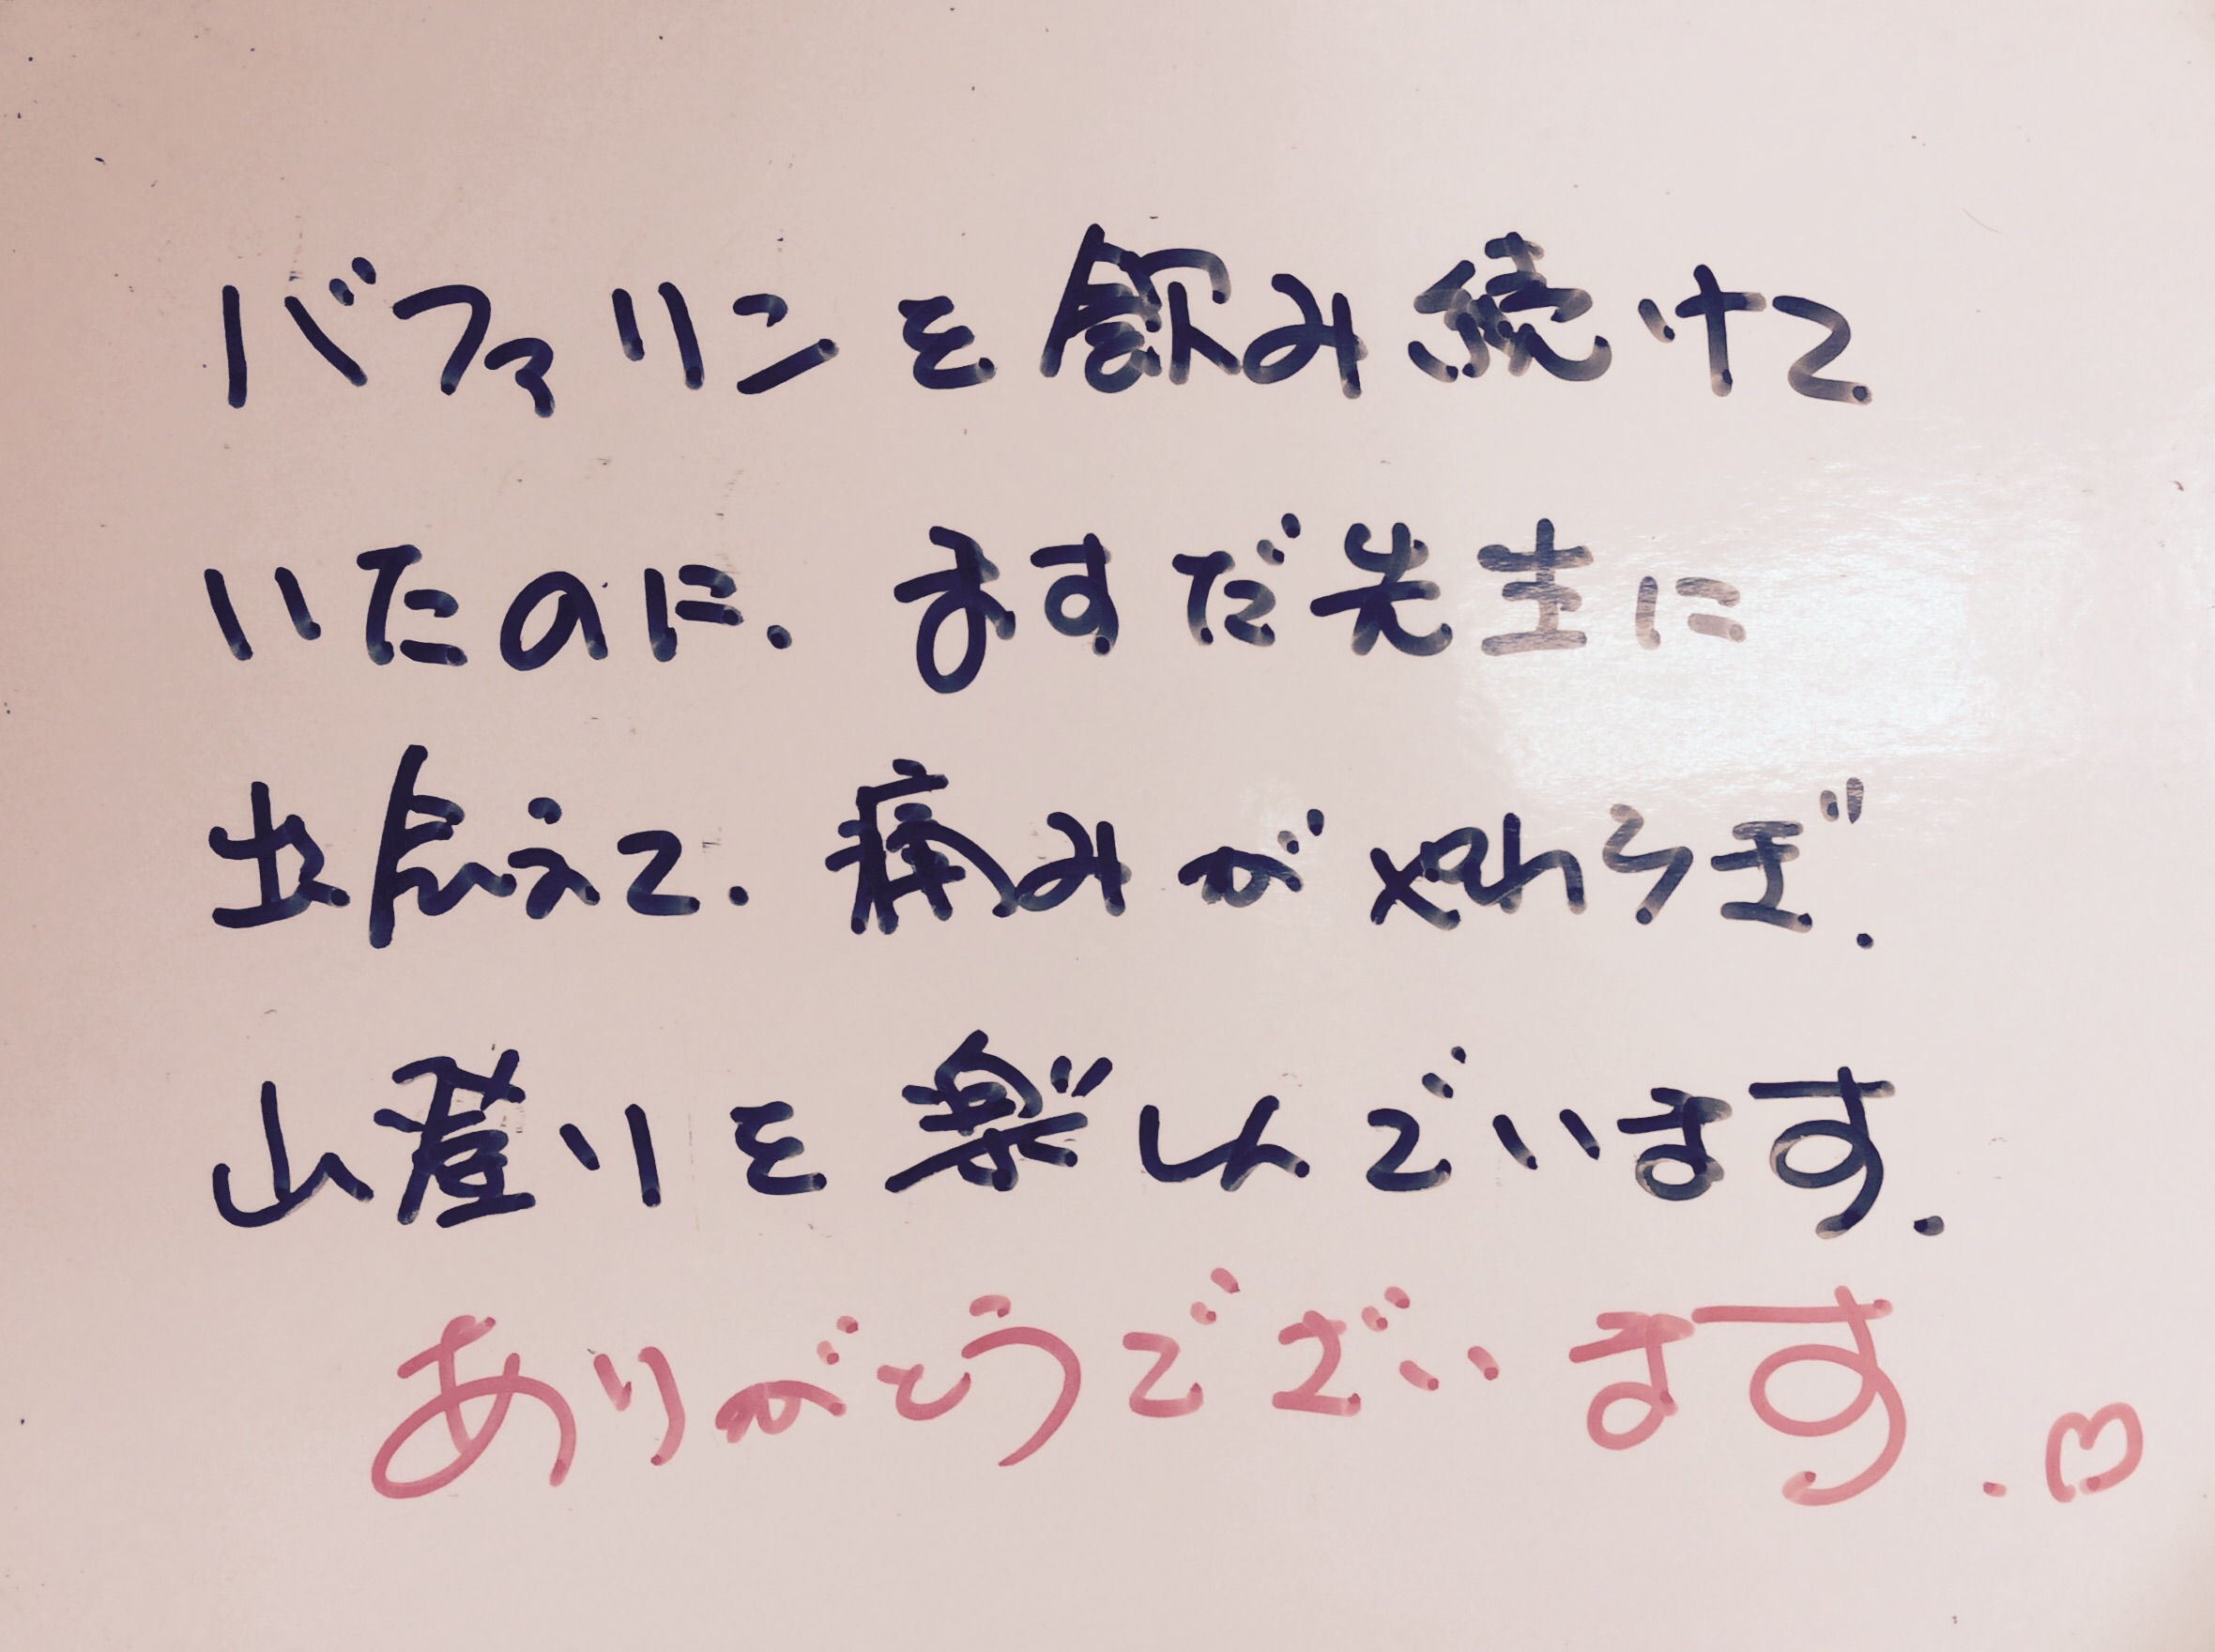 バファリンを飲み続けて
いたのに.ますだ先生に
出会えて.痛みがやわらぎ.
山登りを楽しんでいます.
ありがとうございます.♡